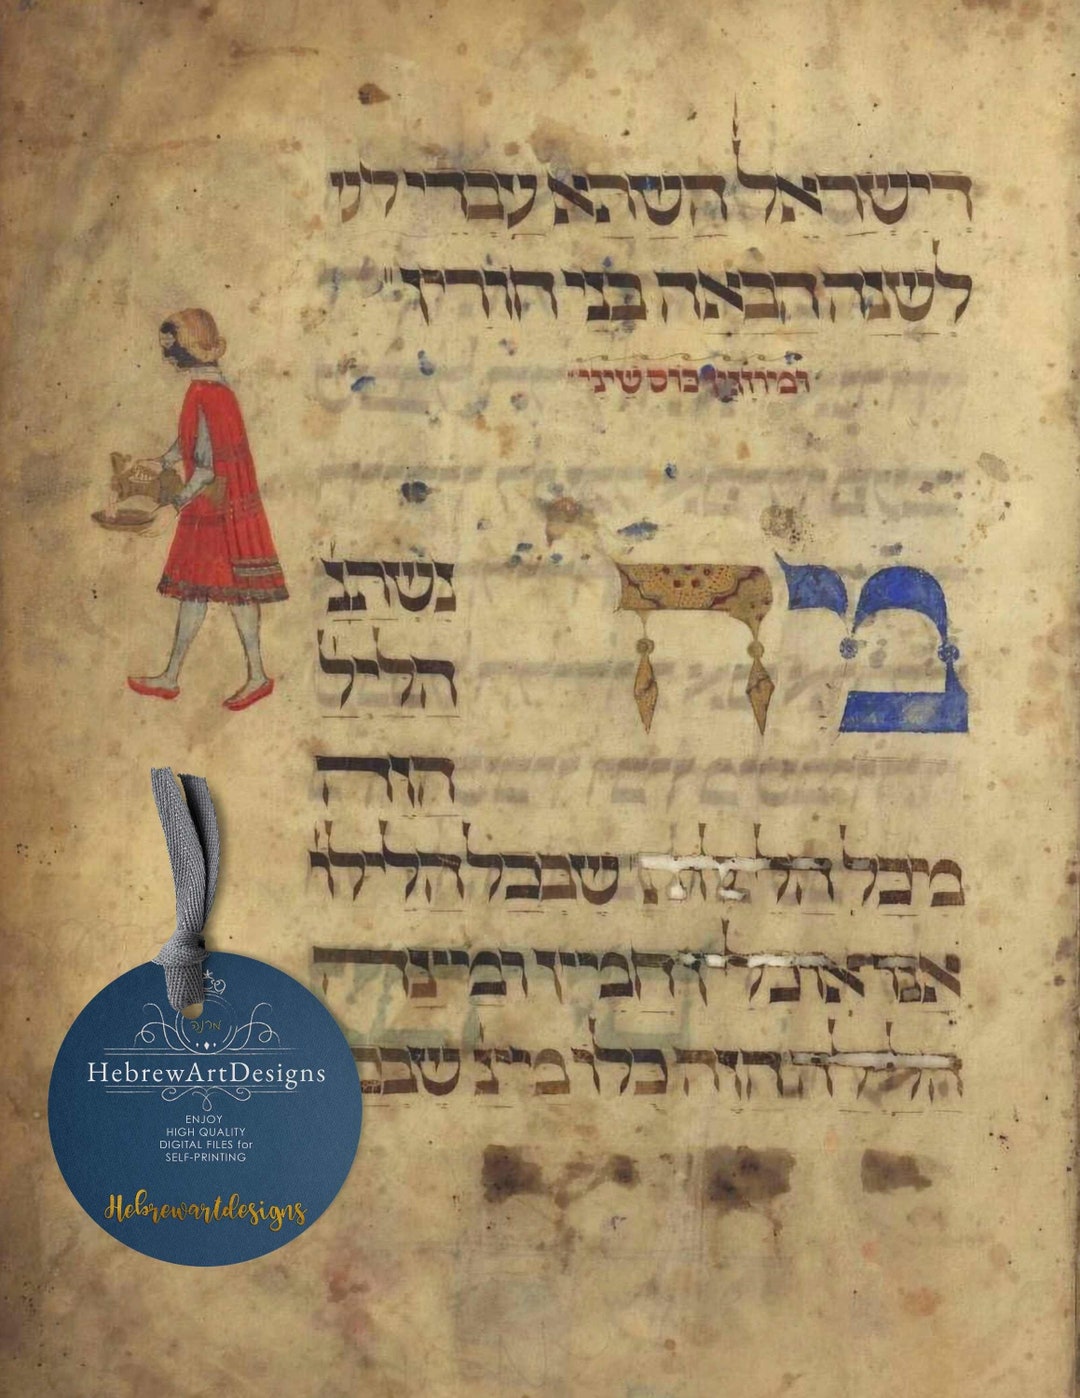 דישראל השתא עבדי לש
לשנה הבאה בני חורין
ומוזגין כוס שיני
מה
נשתנ
הליל
הזה
מכל שבכל הלילו
אנו אוכלין חמץ ומצה
הלילה הזה כלו מצ שבכ
מרנה
HebrewArtDesigns
ENJOY
HIGH QUALITY
DIGITAL FILES for
SELF-PRINTING
Hebrewartdesigns